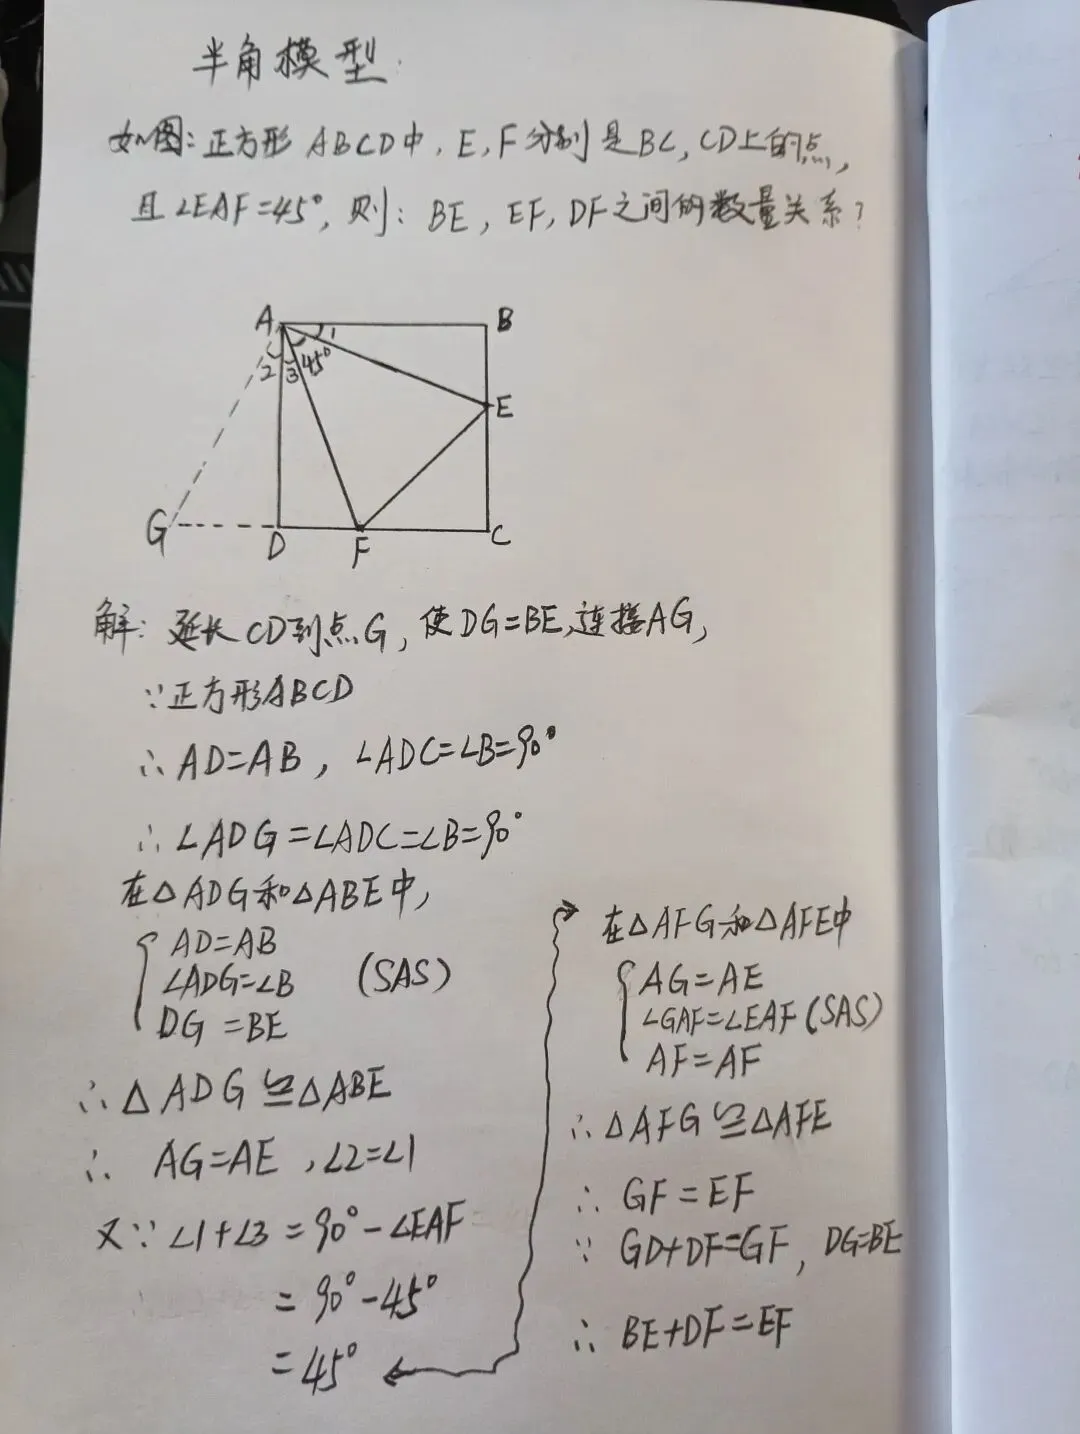 半角模型.
如图:正方形ABCD中,E,F分别是BC,CD上的点,
且∠EAF=45°,则:BE,EF,DF之间的数量关系?
A
B
1
2
3
45°
E
G
D
F
C
解:延长CD到点G,使DG=BE,连接AG,
∵正方形ABCD
∴AD=AB,∠ADC=∠B=90°
∴∠ADG=∠ADC=∠B=90°
在△ADG和△ABE中,
AD=AB
∠ADG=∠B (SAS)
DG=BE
∴△ADG≌△ABE
∴AG=AE,∠2=∠1
又∵∠1+∠3=90°-∠EAF
=90°-45°
=45°
在△AFG和△AFE中
AG=AE
∠GAF=∠EAF(SAS)
AF=AF
∴△AFG≌△AFE
∴GF=EF
∵GD+DF=GF,DG=BE
∴BE+DF=EF